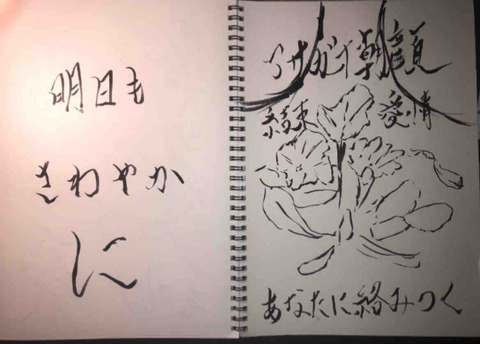 明日も
さわやか
に
アサガオ朝顔
結束 愛情
あなたに絡みつく